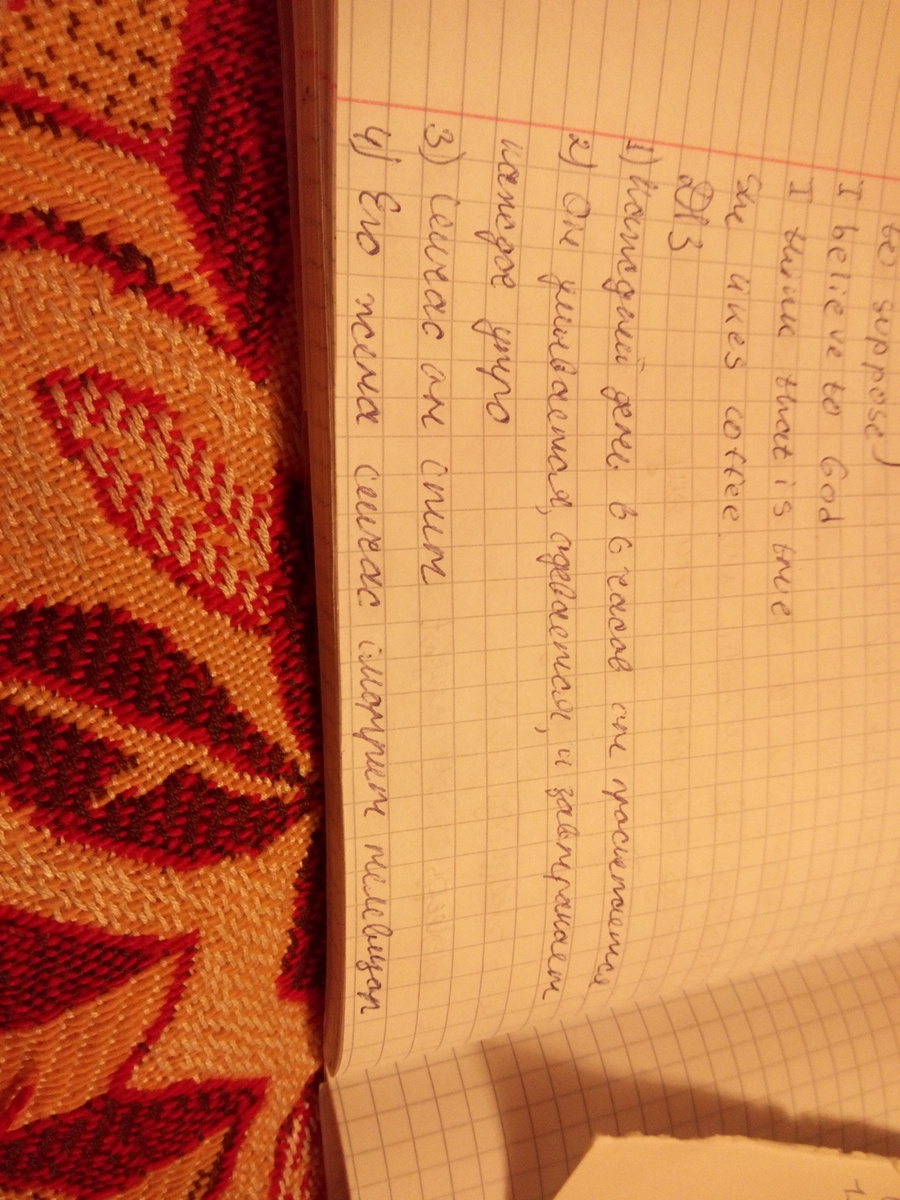 to suppose)
I believe to God
I think that is true
She likes coffee
ДЗ
1) Каждый день в 6 часов он просыпается
2) Он умывается, одевается, и завтракает
каждое утро
3) Сейчас он спит
4) Его жена сейчас смотрит телевизор